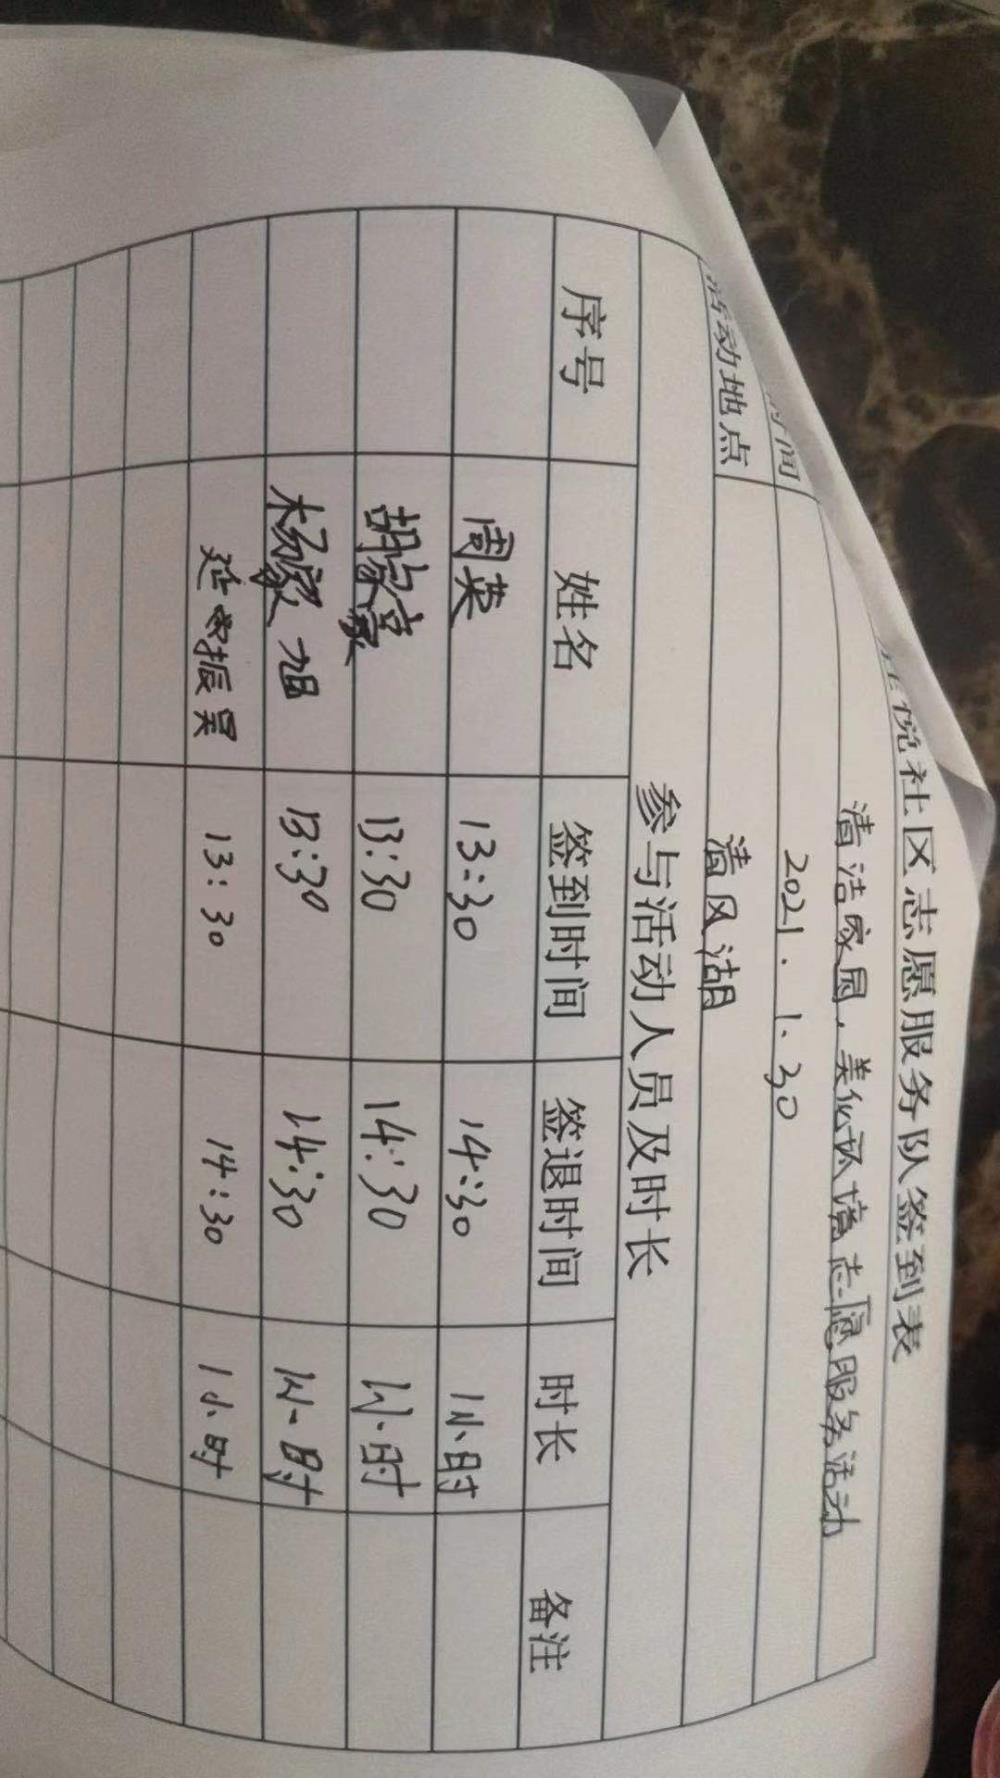 悦社区志愿服务队签到表
清洁家园，美化环境志愿服务活动
时间 2021.1.30
活动地点 清风湖
参与活动人员及时长
序号 姓名 签到时间 签退时间 时长 备注
周英 13:30 14:30 1小时
13:30 14:30 1小时
杨家旭 13:30 14:30 1小时
振昊 13:30 14:30 1小时